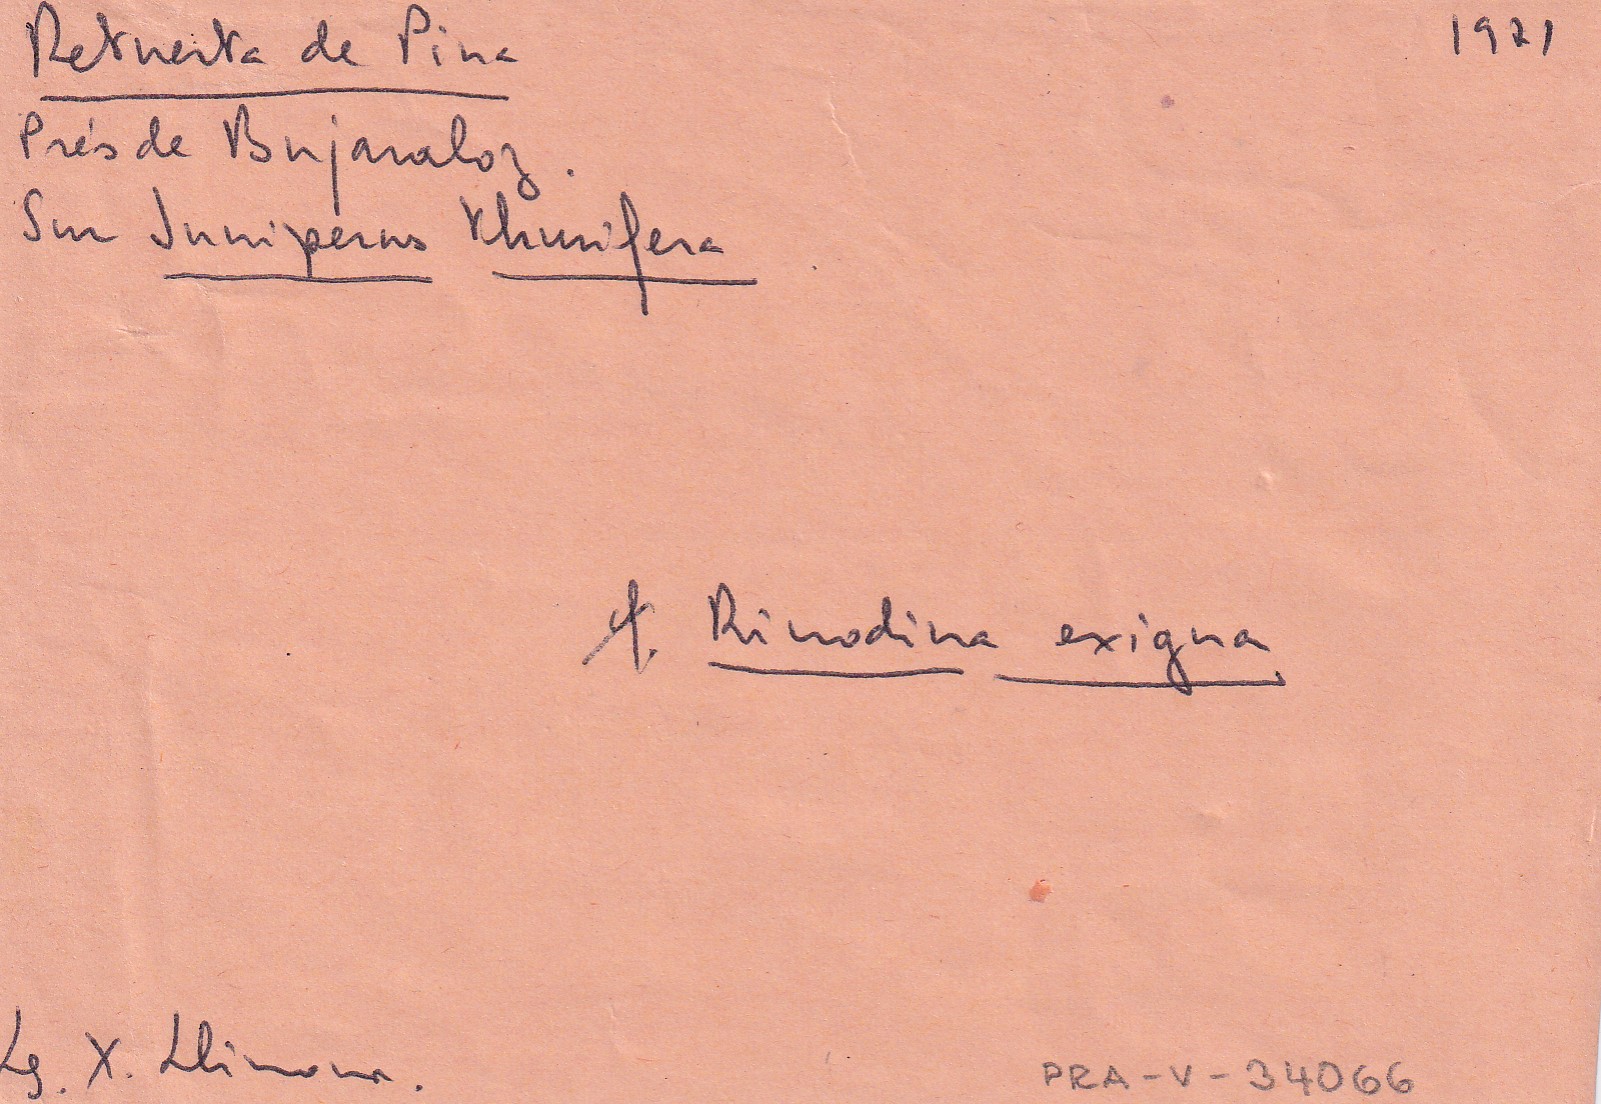 Retuerta de Pina
1971
Près de Bujaraloz.
Sur Juniperus thurifera
cf. Rinodina exigua
Lg. X. Llimona.
PRA-V-34066